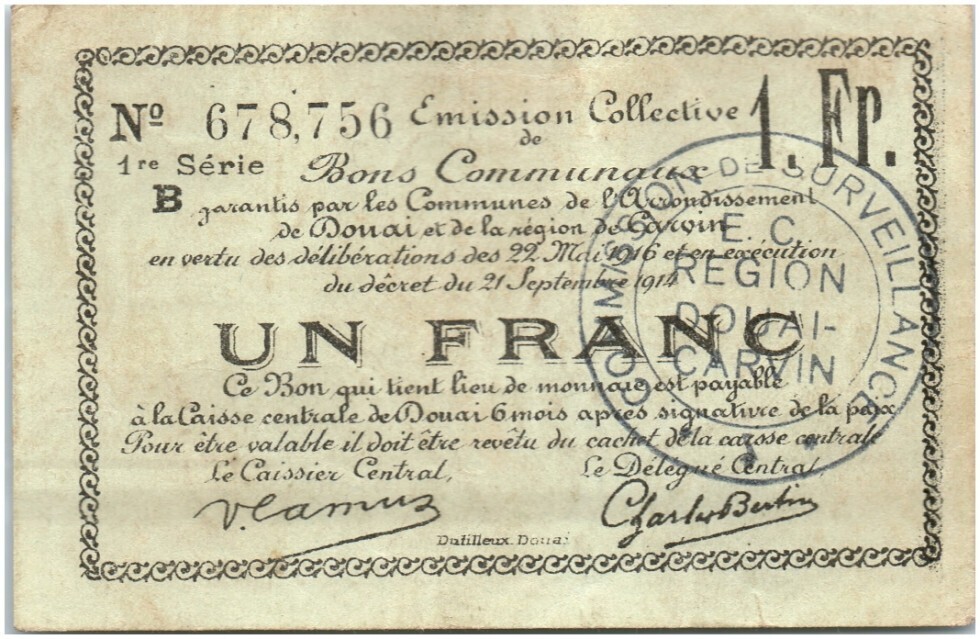 Nº 678,756 Emission Collective 1. Fr.
de
1re Série Bons Communaux
B garantis par les Communes de l'Arrondissement
de Douai et de la région de Carvin
en vertu des délibérations des 22 Mai 1916 et en exécution
du décret du 21 Septembre 1914
UN FRANC
Ce Bon qui tient lieu de monnaie est payable
à la Caisse centrale de Douai 6 mois après signature de la paix
Pour être valable il doit être revêtu du cachet de la caisse centrale
Le Caissier Central, Le Délégué Central,
V. Lamur Charles Bertin
Dutilleux. Douai
COMMISSION DE SURVEILLANCE
E. C.
REGION
DOUAI-
CARVIN